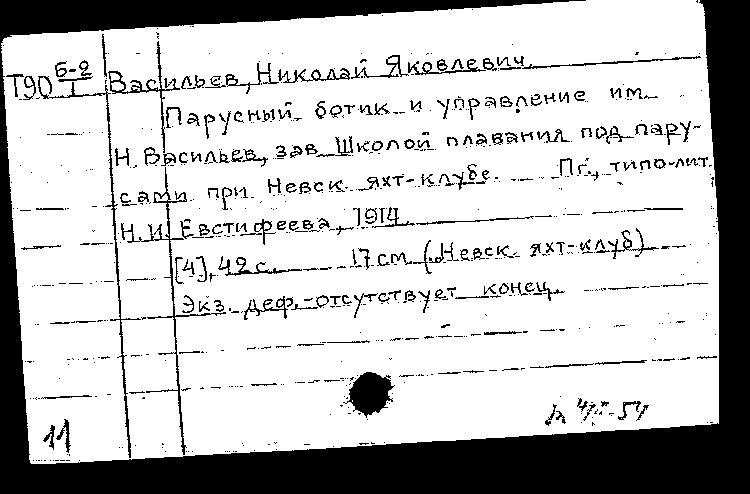 Т90 Б-2/1 Васильев, Николай Яковлевич.
Парусный ботик и управление им
Н. Васильев, зав. Школой плавания под пару-
сами при Невск. яхт-клубе. Пг., типо-лит.
Н. И. Евстифеева, 1914.
[4], 42 с. 17 см. (Невск. яхт-клуб)
Экз. деф.-отсутствует конец.
11